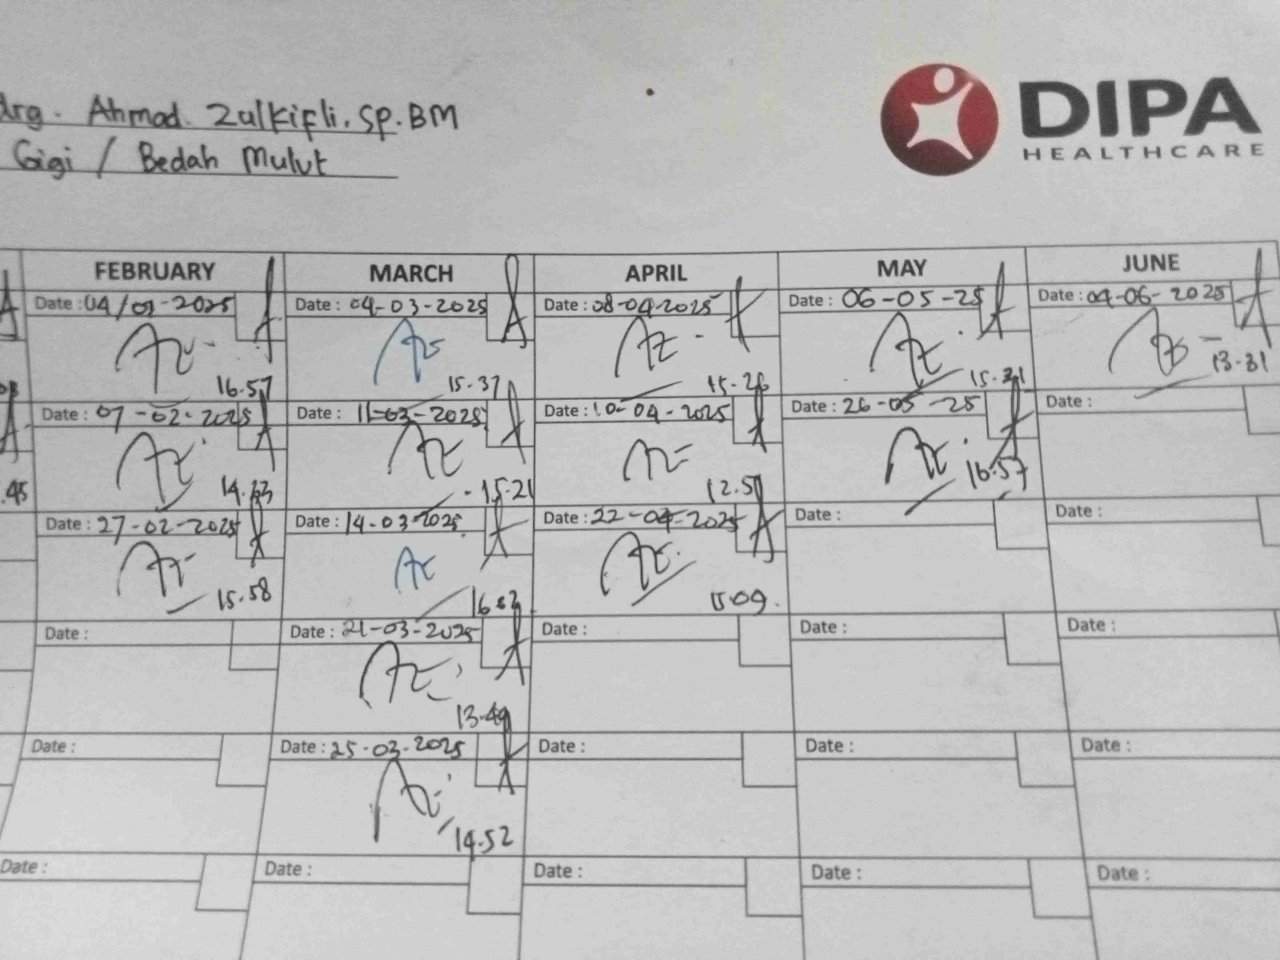 drg. Ahmad. Zulkifli. Sp.BM
Gigi / Bedah Mulut
DIPA
HEALTHCARE
FEBRUARY MARCH APRIL MAY JUNE
Date : 04/02-2025 Date : 04-03-2025 Date : 08-04-2025 Date : 06-05-25 Date : 04-06-2025
16.57 15.37 15.26 15.31 13.31
Date : 07-02-2025 Date : 11-03-2025 Date : 10-04-2025 Date : 26-05-25 Date :
.45 14.33 15.21 12.51 16.57
Date : 27-02-2025 Date : 14-03-2025 Date : 22-04-2025 Date : Date :
15.58 16.02 15.09
Date : Date : 21-03-2025 Date : Date : Date :
13.49
Date : Date : 25-03-2025 Date : Date : Date :
14.52
Date : Date : Date : Date : Date :